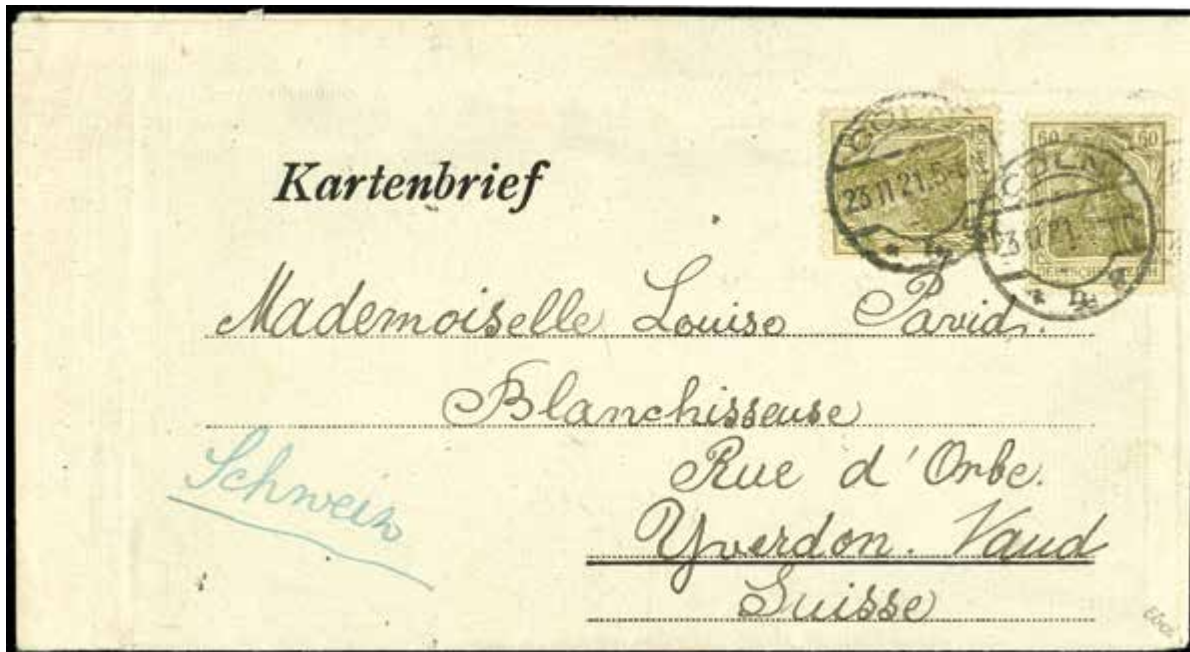 Kartenbrief
60 60
CÖLN
23.11.21.5-
CÖLN
23.11.21.
DEUTSCHES REICH
Mademoiselle Louise Pavid.
Blanchisseuse
Rue d'Orbe.
Yverdon. Vaud
Suisse
Schweiz